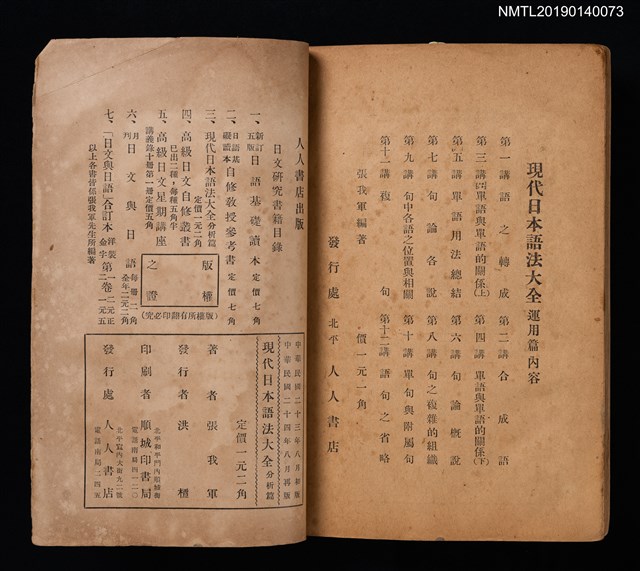 NMTL20190140073
現代日本語法大全 運用篇內容
第一講 語之轉成 第二講 合成語
第三講 單語與單語的關係(上) 第四講 單語與單語的關係(下)
第五講 單語用法總結 第六講 句論概說
第七講 句論各說 第八講 句之複雜的組織
第九講 句中各語之位置與相關 第十講 單句與附屬句
第十一講 複句 第十二講 語句之省略
張我軍編著 價一元一角
發行處 北平 人人書店
人人書店出版
日文研究書籍目錄
一、新訂五版 日語基礎讀本 定價七角
二、日語基礎讀本 自修教授參考書 定價七角
三、現代日本語法大全 分析篇 定價一元二角
四、高級日文自修叢書 已出二種，每種五角半
五、高級日文星期講座 講義錄十冊第一冊定價五角
六、月刊 日文與日語 每冊二角 全年二元二角
七、「日文與日語」合訂本 第一卷 洋裝 二元正 金字 二元一五
以上各書皆係張我軍先生所編著
版權之證
(版權所有翻印必究)
中華民國二十三年八月初版
中華民國二十四年八月再版
現代日本語法大全 分析篇
定價一元二角
著者 張我軍
發行者 洪櫃
印刷者 順城印書局
北平和平門內順城街
電話南局四一二〇
發行處 人人書店
電話南局二四五